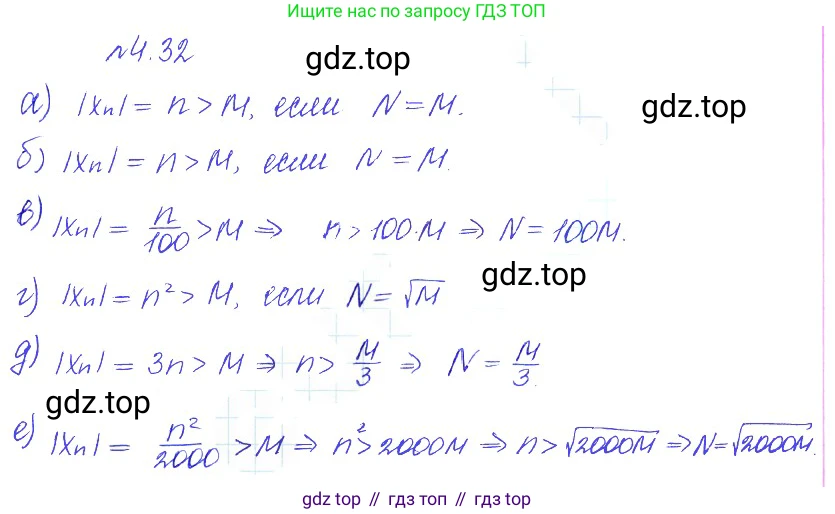 Ищите нас по запросу ГДЗ ТОП
№4.32
gdz.top
а) |xₙ| = n > M, если N = M.
gdz.top
б) |xₙ| = n > M, если N = M.
в) |xₙ| = n/100 > M ⇒ n > 100·M ⇒ N = 100M.
gdz.top
г) |xₙ| = n² > M, если N = √M
д) |xₙ| = 3n > M ⇒ n > M/3 ⇒ N = M/3.
gdz.top
е) |xₙ| = n²/2000 > M ⇒ n² > 2000M ⇒ n > √2000M ⇒ N = √2000M.
gdz top // гдз топ // gdz top